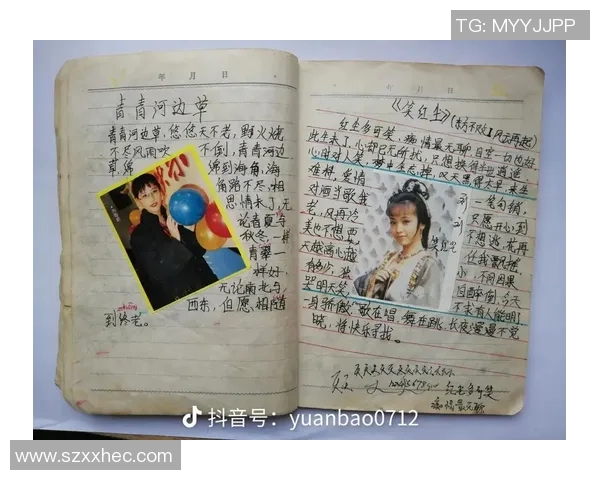 TG: MYYJJPP
年 月 日
青青河边草
青青河边草,悠悠天不老,野火烧
不尽风雨吹 不倒,青青河边
草,绵 绵到海角,海
角路不尽,相
思情未了,无
论春夏与
秋冬,一样
青翠一
样好,
无论南北与
西东,但愿相随
到终老。
年 月 日
《笑红尘》(东方不败风云再起)
红尘多可笑,痴情最无聊,目空一切也好
此生未了,心却已无所扰,只想换得半世逍遥
醒时对人笑,梦中全忘掉,叹天黑得太早,来生
难料,爱情 一笔勾销,
对酒当歌我 只愿开心到
老,风再冷 不想逃,花再
美也不想要 任我飘摇
天越高心越 小,不问因果
有多少,独 自醉倒,今天
哭明天笑, 不求有人能明了
一身骄傲,歌在唱,舞在跳,长夜漫漫不觉
晓,将快乐寻找。
抖音号: yuanbao0712
www.szxxhec.com